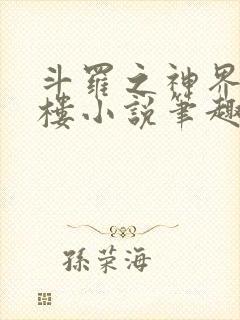 斗羅之神界
樓小說筆趣
孫荣海